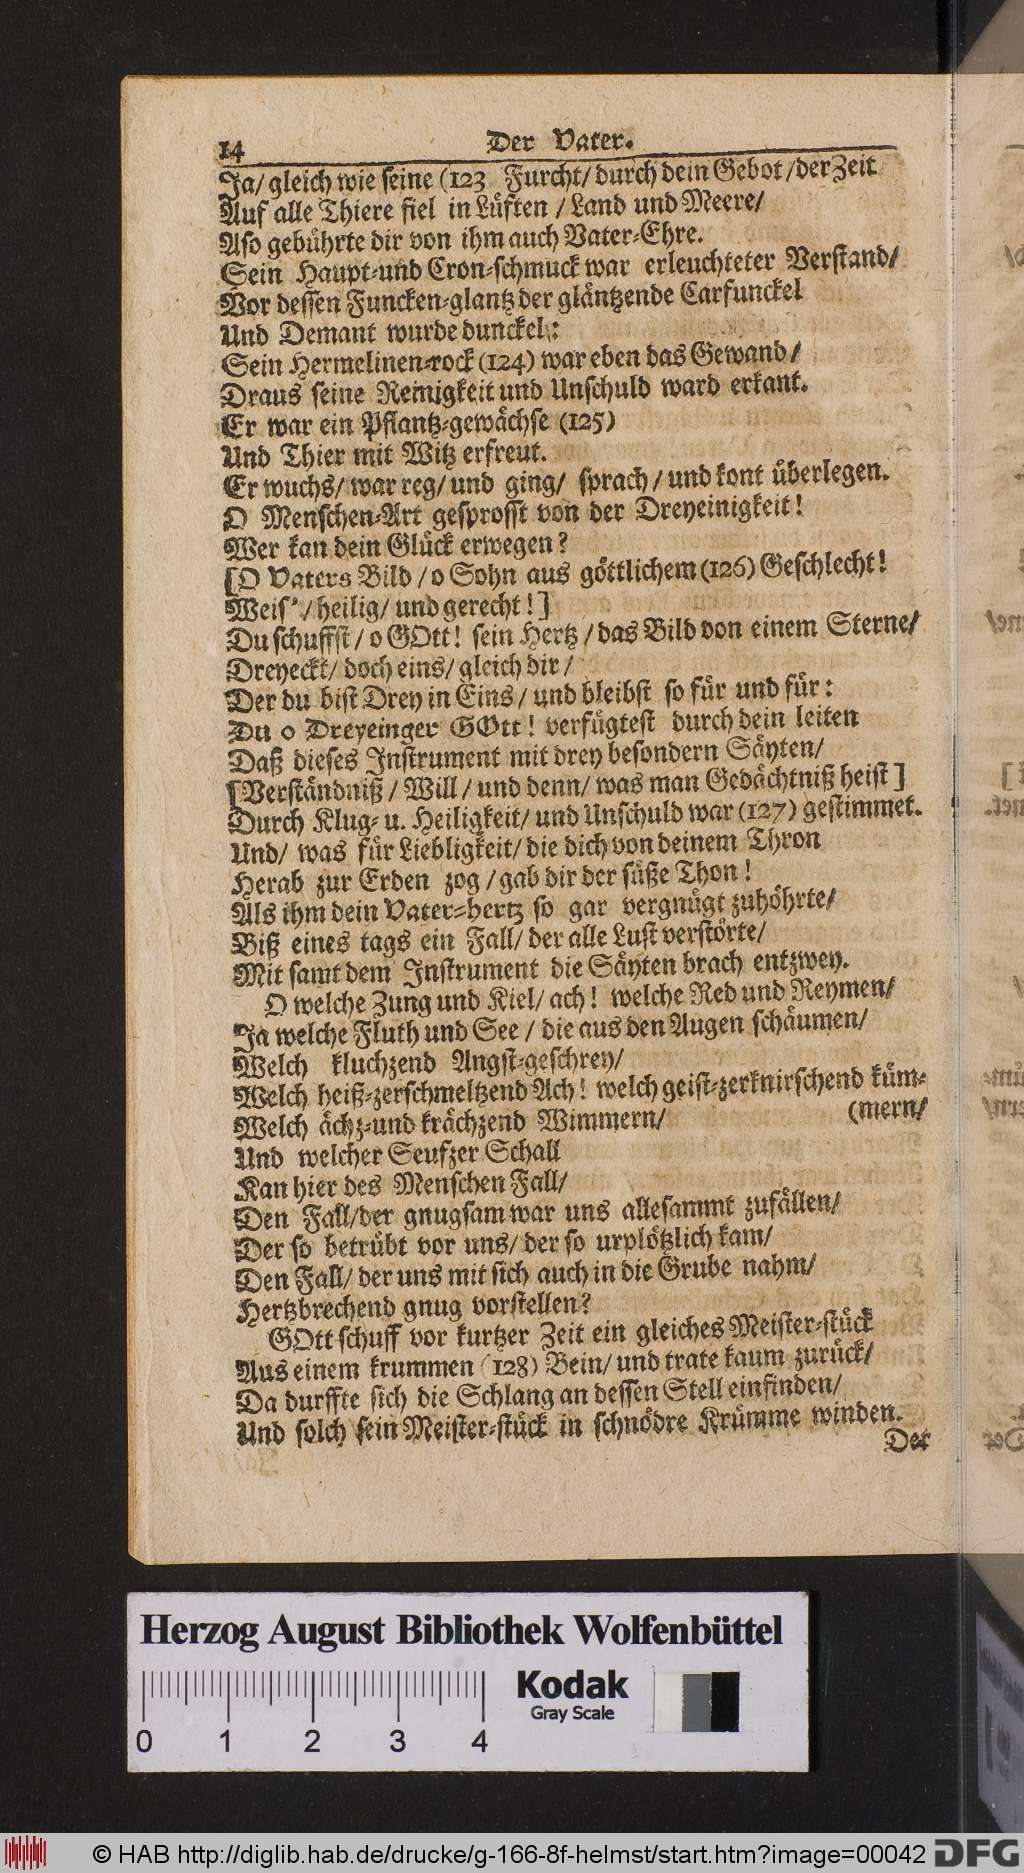 14 Der Vater.
Ja/ gleich wie seine (123 Furcht/ durch dein Gebot /der Zeit
Auf alle Thiere fiel in Lüften / Land und Meere/
Aso gebührte dir von ihm auch Vater-Ehre.
Sein Haupt-und Cron-schmuck war erleuchteter Verstand/
Vor dessen Funcken-glantz der gläntzende Carfunckel
Und Demant wurde dunckel:
Sein Hermelinen-rock (124) war eben das Gewand /
Draus seine Reinigkeit und Unschuld ward erkant.
Er war ein Pflantz-gewächse (125)
Und Thier mit Witz erfreut.
Er wuchs/ war reg/ und ging/ sprach / und kont überlegen.
O Menschen-Art gesprosst von der Dreyeinigkeit!
Wer kan dein Glück erwegen?
[O Vaters Bild / o Sohn aus göttlichem (126) Geschlecht!
Weis'/ heilig/ und gerecht!]
Du schuffst / o GOtt! sein Hertz / das Bild von einem Sterne/
Dreyeckt/ doch eins/ gleich dir /
Der du bist Drey in Eins / und bleibst so für und für:
Du o Dreyeinger GOtt! verfügtest durch dein leiten
Daß dieses Instrument mit drey besondern Säyten/
[Verständniß / Will / und denn/ was man Gedächtniß heist]
Durch Klug- u. Heiligkeit/ und Unschuld war (127) gestimmet.
Und/ was für Liebligkeit/ die dich von deinem Thron
Herab zur Erden zog / gab dir der süße Thon!
Als ihm dein Vater-hertz so gar vergnügt zuhöhrte/
Biß eines tags ein Fall/ der alle Lust verstörte/
Mit samt dem Instrument die Säyten brach entzwey.
O welche Zung und Kiel/ ach! welche Red und Reymen/
Ja welche Fluth und See / die aus den Augen schäumen/
Welch kluchzend Angst-geschrey/
Welch heiß-zerschmeltzend Ach! welch geist-zerknirschend küm-
Welch ächz-und krächzend Wimmern/ (mern/
Und welcher Seufzer Schall
Kan hier des Menschen Fall/
Den Fall/der gnugsam war uns allesammt zufällen/
Der so betrübt vor uns/ der so urplötzlich kam/
Den Fall/ der uns mit sich auch in die Grube nahm/
Hertzbrechend gnug vorstellen?
GOtt schuff vor kurtzer Zeit ein gleiches Meister-stück
Aus einem krummen (128) Bein/ und trate kaum zurück/
Da durffte sich die Schlang an dessen Stell einfinden/
Und solch sein Meister-stück in schnödre Krümme winden.
Der
Herzog August Bibliothek Wolfenbüttel
Kodak
Gray Scale
0 1 2 3 4
© HAB http://diglib.hab.de/drucke/g-166-8f-helmst/start.htm?image=00042 DFG